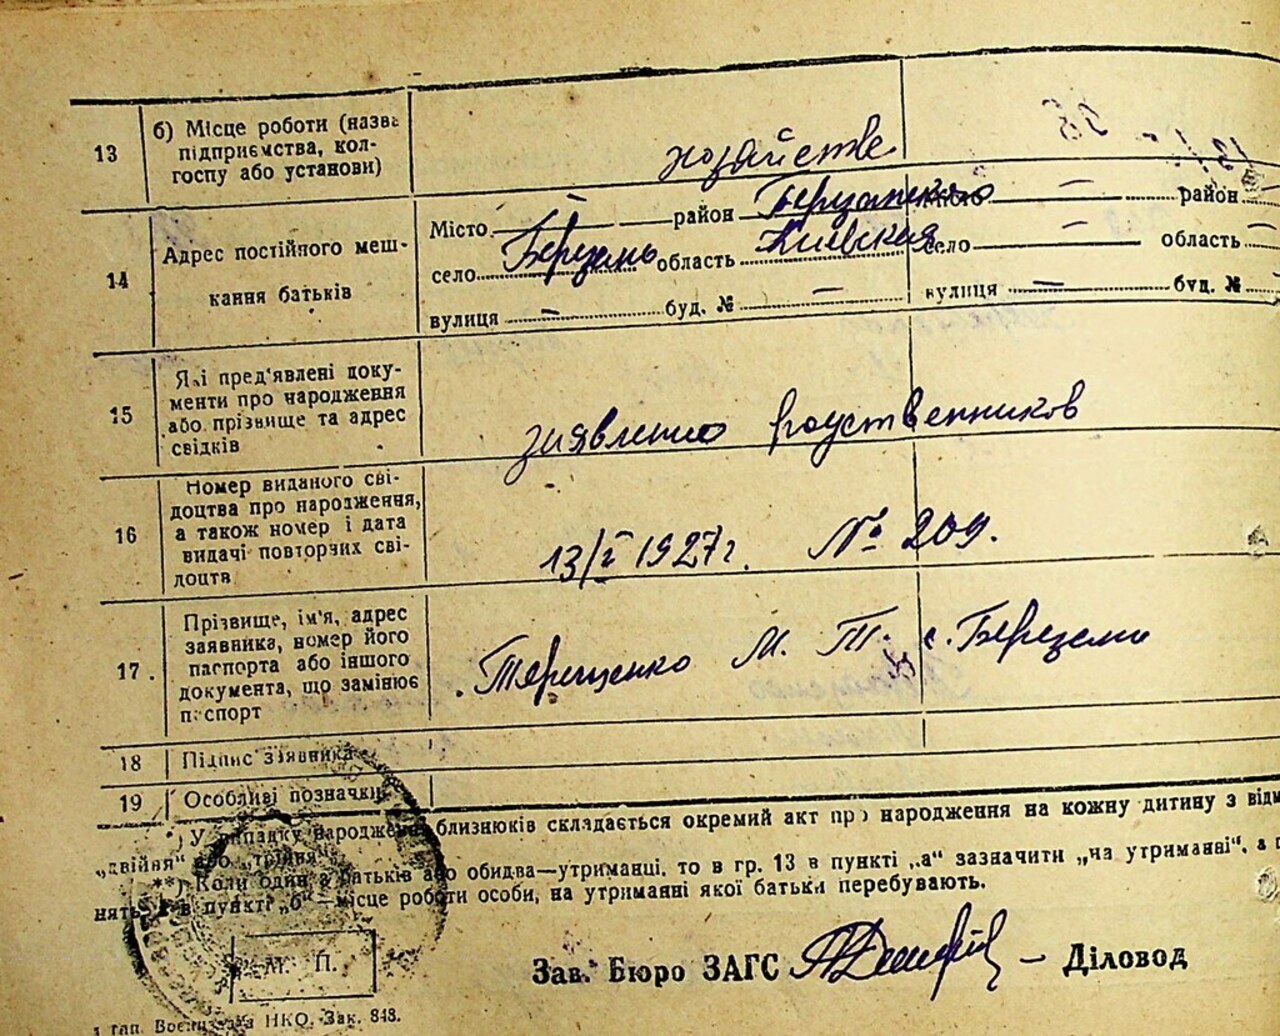 13
б) Місце роботи (назва
підприємства, кол-
госпу або установи)
хозяйстве
14
Адрес постійного меш-
кання батьків
Місто — район
село Березень область Киевская
вулиця — буд. № —
— район
село — область —
вулиця — буд. №
15
Які пред'явлені доку-
менти про народження
або прізвище та адрес
свідків
заявление родственников
16
Номер виданого сві-
доцтва про народження,
а також номер і дата
видачі повторних сві-
доцтв
13/V 1927 г. № 209.
17.
Прізвище, ім'я, адрес
заявника, номер його
паспорта або іншого
документа, що замінює
паспорт
Терещенко М. Т. с. Березень
18
Підпис заявника
19
Особливі позначки
*) У випадку народження близнюків складається окремий акт про народження на кожну дитину з
„двійня“ або „трійня“.
**) Коли один з батьків або обидва—утриманці, то в гр. 13 в пункті „а“ зазначити „на утриманні“, а
в пункті „б“—місце роботи особи, на утриманні якої батьки перебувають.
М. П.
Зав. Бюро ЗАГС — Діловод
НКО. Зак. 848.